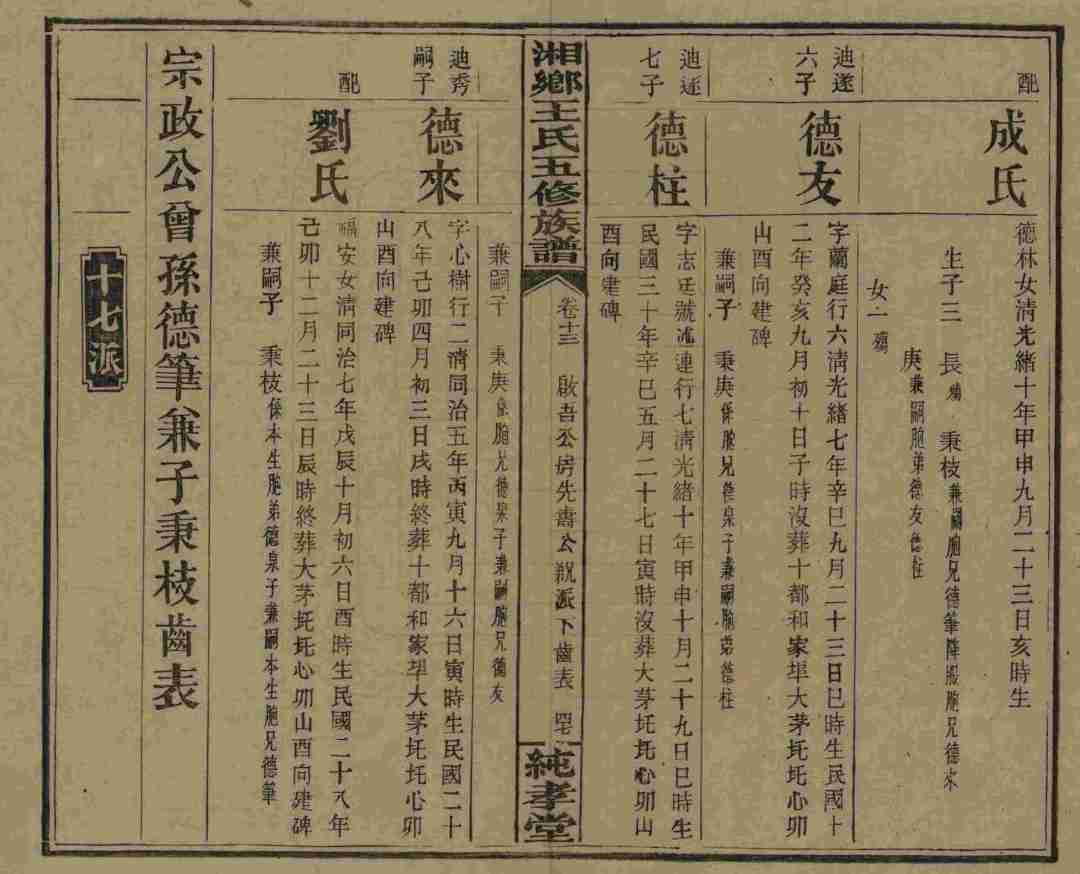 配
成氏
德林女清光緒十年甲申九月二十三日亥時生
生子三 長殤 秉枝兼嗣胞兄德筆降服胞兄德來
庚兼嗣胞弟德友德柱
女一殤
迪遂
六子
德友
字蘭庭行六清光緒七年辛巳九月二十三日巳時生民國十
二年癸亥九月初十日子時沒葬十都和家埠大茅坵坵心卯
山酉向建碑
兼嗣子 秉庚係胞兄德泉子兼嗣胞弟德柱
迪遂
七子
德柱
字志 號 連行七清光緒十年甲申十月二十九日巳時生
民國三十年辛巳五月二十七日寅時沒葬大茅坵坵心卯山
酉向建碑
湘鄉王氏五修族譜
卷十三 啟吾公房先 公 派下齒表
純孝堂
兼嗣子 秉庚係胞兄德泉子兼嗣胞兄德友
迪秀
嗣子
德來
字心樹行二清同治五年丙寅九月十六日寅時生民國二十
八年己卯四月初三日戌時終葬十都和家埠大茅坵坵心卯
山酉向建碑
配
劉氏
福安女清同治七年戊辰十月初六日酉時生民國二十八年
己卯十二月二十三日辰時終葬大茅坵坵心卯山酉向建碑
兼嗣子 秉枝係本生胞弟德泉子兼嗣本生胞兄德筆
宗政公曾孫德筆公兼子秉枝齒表
十七派